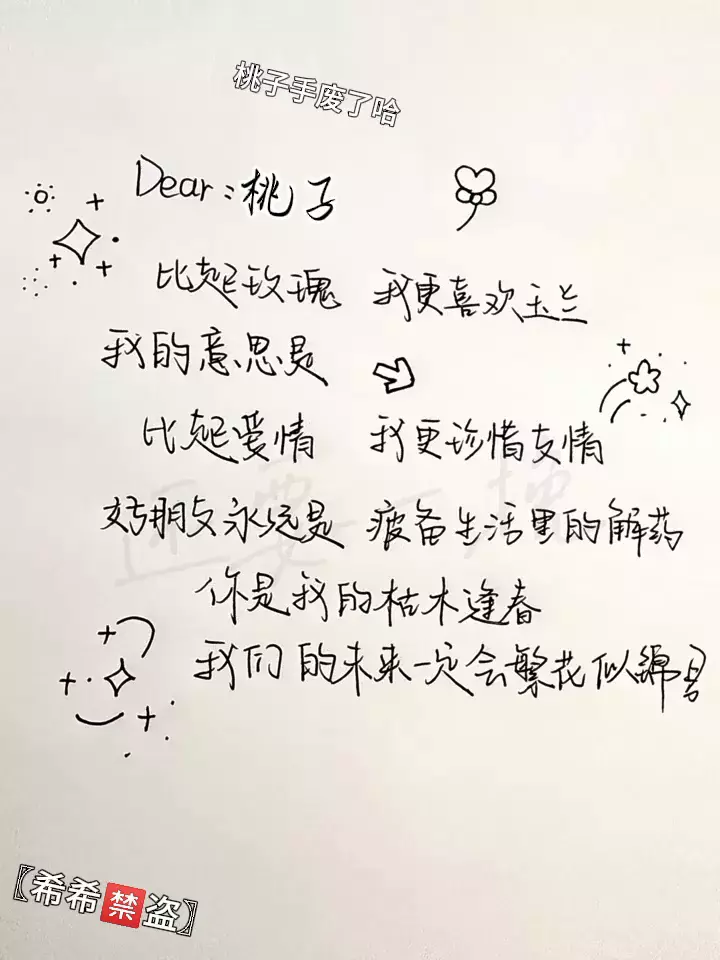 桃子手废了哈
Dear:桃子
比起玫瑰 我更喜欢玉兰
我的意思是
比起爱情 我更珍惜友情
好朋友永远是 疲备生活里的解药
你是我的枯木逢春
我们的未来一定会繁花似绵
〖希希禁盗〗